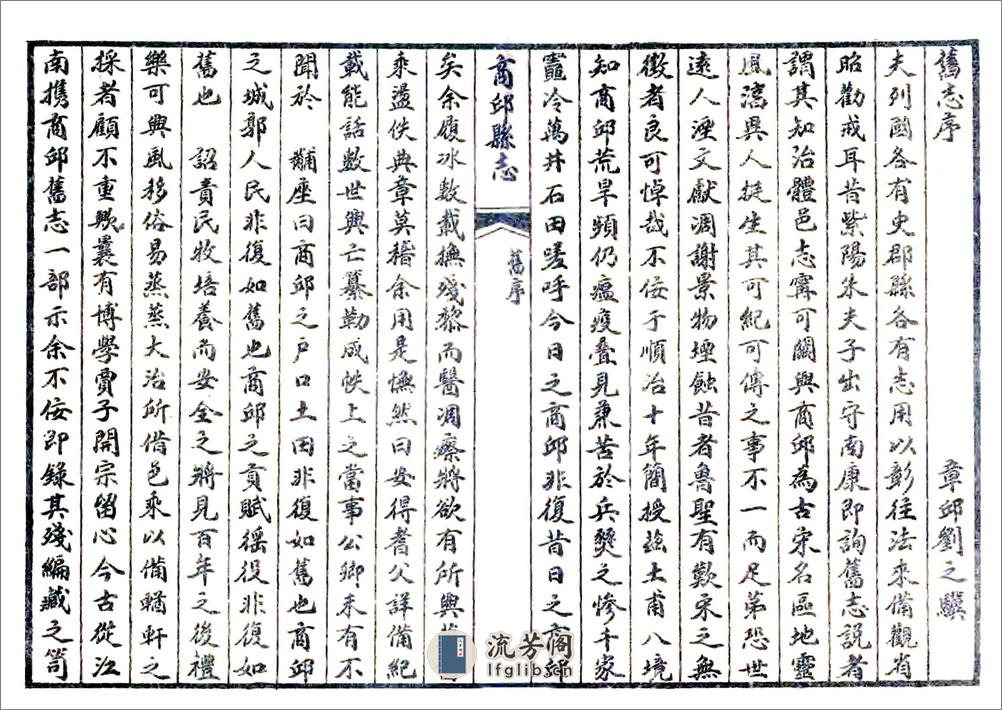 舊志序
章邱劉之驥
夫列國各有史郡縣各有志用以彰往法來備觀省
昭勸戒耳昔紫陽朱夫子出守南康即詢舊志説者
謂其知治體邑志寧可闕與商邱為古宋名區地靈
風漓異人挺生其可紀可傳之事不一而足第恐世
遠人湮文獻凋謝景物堙蝕昔者魯聖有歎宋之無
徵者良可悼哉不佞于順治十年簡授茲土甫入境
知商邱荒旱頻仍瘟疫疊見兼苦於兵燹之慘千家
竈冷萬井石田嗟呼今日之商邱非復昔日之商邱
商邱縣志
舊序
矣余履氷數載撫殘黎而醫凋瘵將欲有所興
乘盪佚典章莫稽余用是憮然曰安得耆父詳備紀
載能話數世興亡纂勒成帙上之當事公卿未有不
聞於 黼座曰商邱之戸口土田非復如舊也商邱
之城郭人民非復如舊也商邱之貢賦徭役非復如
舊也 詔責民牧培養而安全之將見百年之後禮
樂可興風移俗易蒸蒸大治所借邑乘以備輶軒之
採者顧不重歟曩有博學賈子開宗留心今古從江
南携商邱舊志一部示余不佞即錄其殘編藏之笥
流芳阁
lfglib.cn